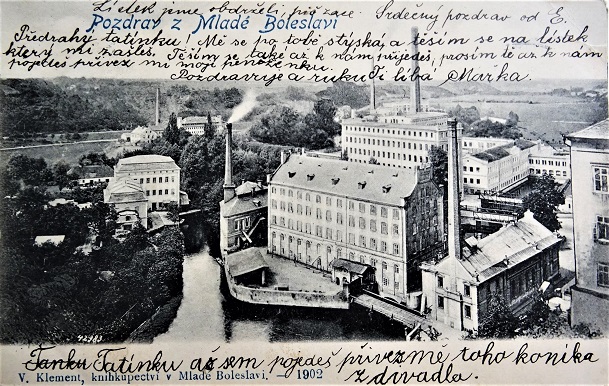 Lístek jsme obdrželi, píš zase. Srdečný pozdrav od E.
Pozdrav z Mladé Boleslavi
Předrahý tatínku! Mě se po tobě stýská a těším se na lístek
který mi zašleš. Těším se také až k nám přijedeš, prosím tě až k nám
pojedeš přivez mi moji panenku.
Pozdravuje a ruku ti líbá Mařka.
42983
Tatínku až sem pojedeš přivez mě toho koníka
V. Klement, knihkupectví v Mladé Boleslavi. 1902
z divadla.